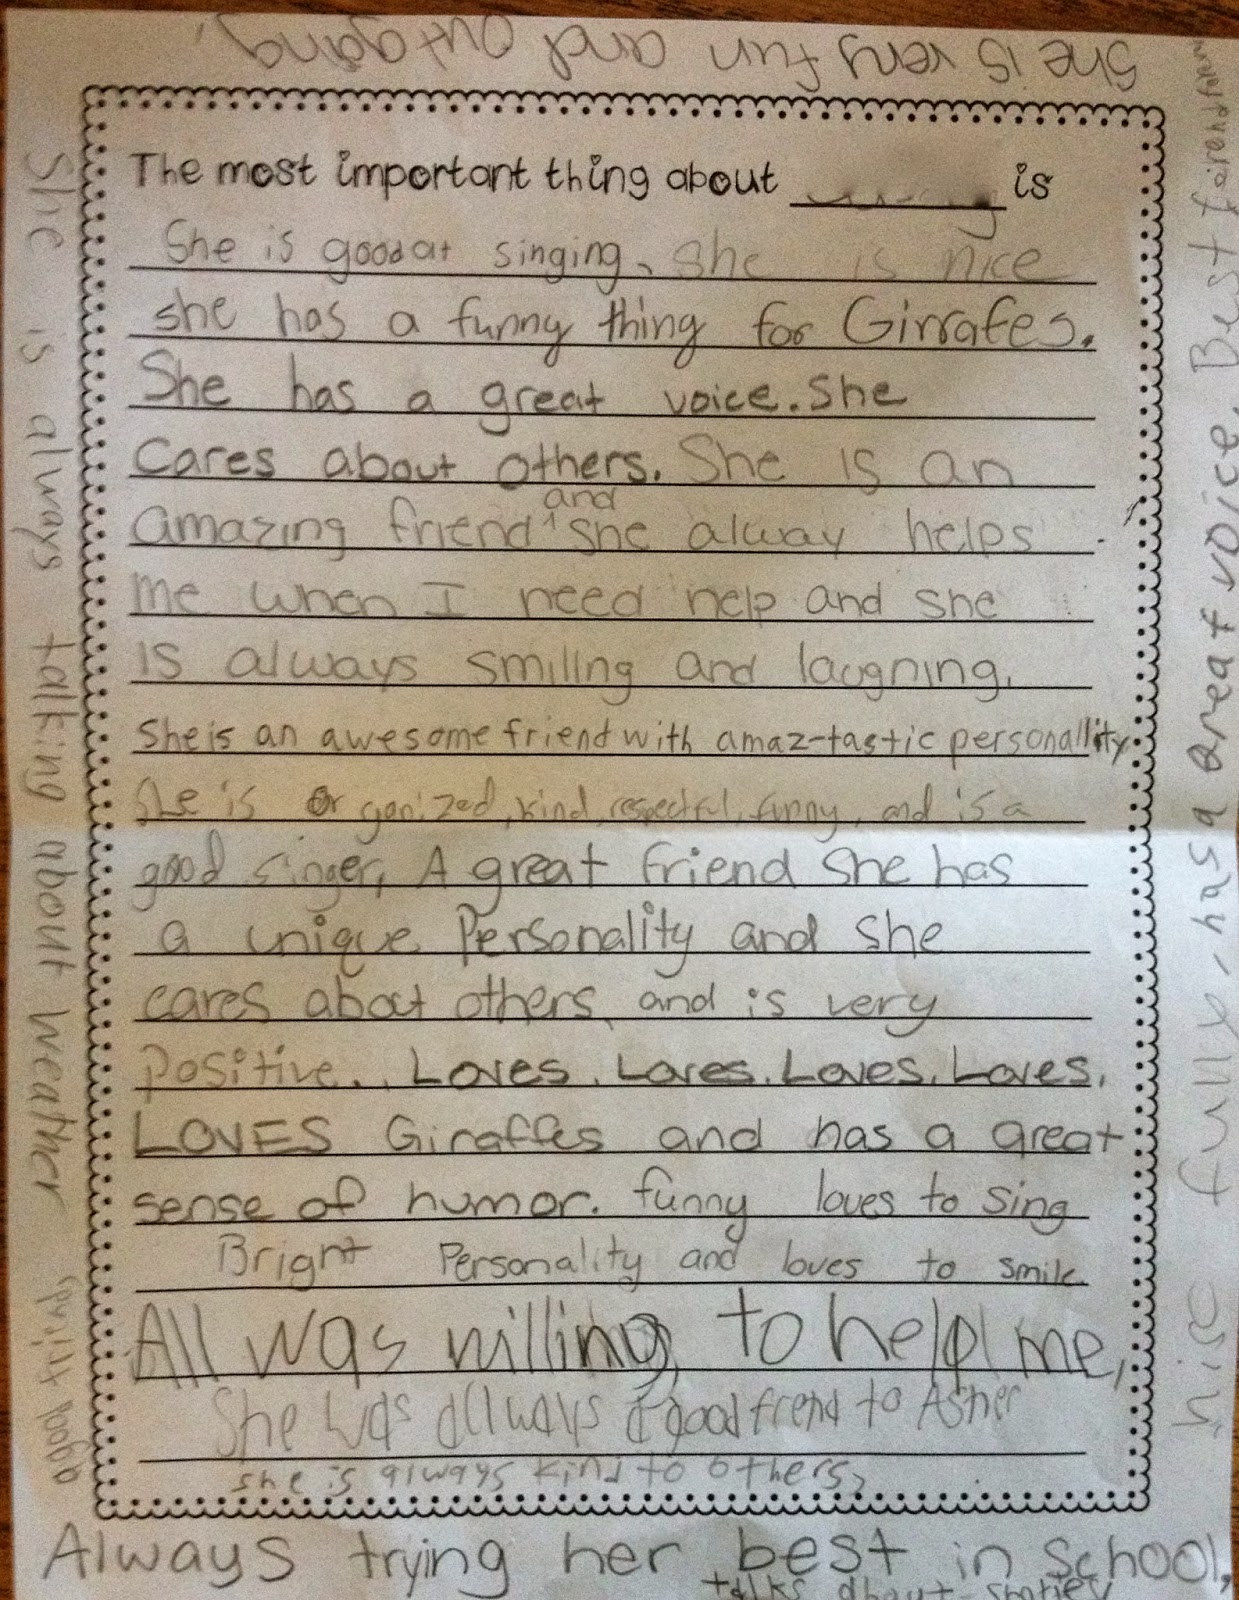 She is very fun and outgoing.
The most important thing about is
She is good at singing, she is nice
she has a funny thing for Girrafes.
She has a great voice. She
Cares about others. She is an
and
amazing friend ^ she alway helps
me when I need help and she
is always smiling and laughing.
She is an awesome friend with amaz-tastic personallity
She is organized, kind, respectful, funny, and is a
good singer, A great friend She has
a unique Personality and she
cares about others, and is very
Positive.. Loves, Loves, Loves, Loves,
LOVES Giraffes and has a great
sense of humor. funny loves to sing
Bright Personality and loves to smile
All was willing to help me,
She was allways a good frend to Asher
she is always kind to others,
Always trying her best in school,
talks about stories
She is always talking about weather
fully, has a great voice, Best